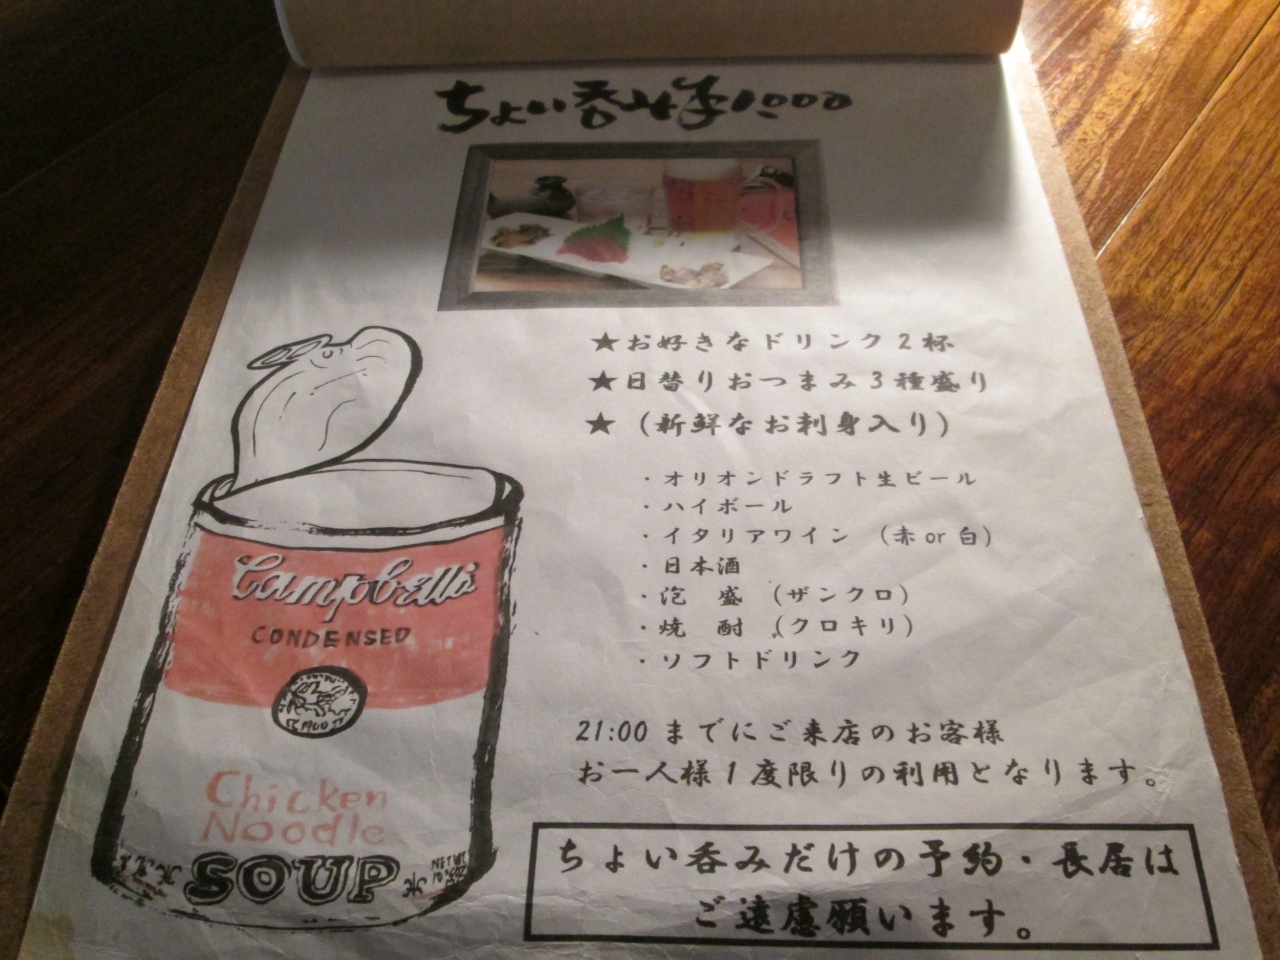 ちょい呑みセット1000
★お好きなドリンク2杯
★日替りおつまみ3種盛り
★（新鮮なお刺身入り）
・オリオンドラフト生ビール
・ハイボール
・イタリアワイン （赤or白）
・日本酒
・泡 盛 （ザンクロ）
・焼 酎 （クロキリ）
・ソフトドリンク
21:00 までにご来店のお客様
お一人様1度限りの利用となります。
ちょい呑みだけの予約・長居は
ご遠慮願います。
Campbell's
CONDENSED
1900
Chicken
Noodle
SOUP